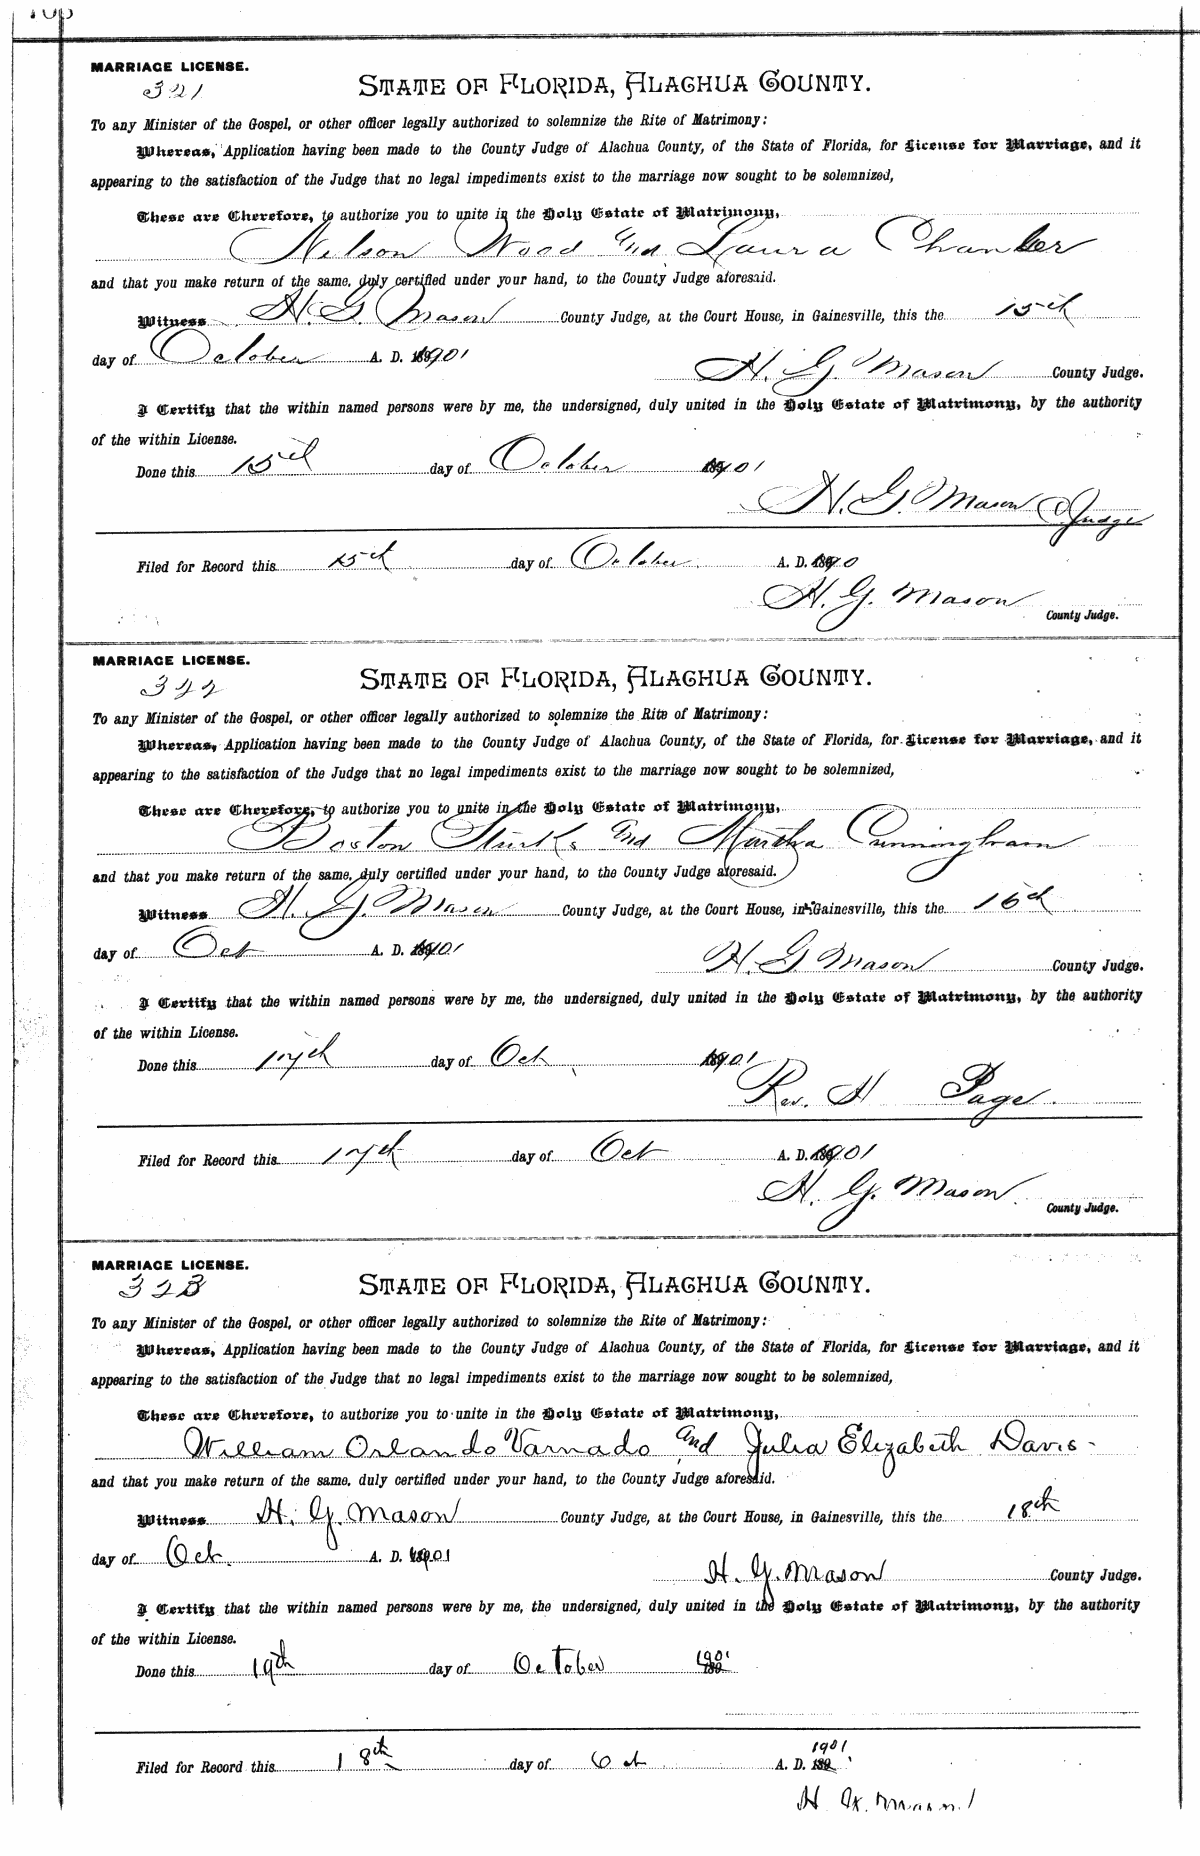 MARRIAGE LICENSE.
321
STATE OF FLORIDA, ALACHUA COUNTY.
To any Minister of the Gospel, or other officer legally authorized to solemnize the Rite of Matrimony:
Whereas, Application having been made to the County Judge of Alachua County, of the State of Florida, for License for Marriage, and it
appearing to the satisfaction of the Judge that no legal impediments exist to the marriage now sought to be solemnized,
These are Therefore, to authorize you to unite in the Holy Estate of Matrimony,
Nelson Wood and Laura Chamber
and that you make return of the same, duly certified under your hand, to the County Judge aforesaid.
Witness H. G. Mason County Judge, at the Court House, in Gainesville, this the 15th
day of October A. D. 1901
H. G. Mason County Judge.
I Certify that the within named persons were by me, the undersigned, duly united in the Holy Estate of Matrimony, by the authority
of the within License.
Done this 15th day of October 1901
H. G. Mason Co Judge
Filed for Record this 15th day of October A. D. 190
H. G. Mason
County Judge.
MARRIAGE LICENSE.
322
STATE OF FLORIDA, ALACHUA COUNTY.
To any Minister of the Gospel, or other officer legally authorized to solemnize the Rite of Matrimony:
Whereas, Application having been made to the County Judge of Alachua County, of the State of Florida, for License for Marriage, and it
appearing to the satisfaction of the Judge that no legal impediments exist to the marriage now sought to be solemnized,
These are Therefore, to authorize you to unite in the Holy Estate of Matrimony,
Boston Sturks and Martha Cunningham
and that you make return of the same, duly certified under your hand, to the County Judge aforesaid.
Witness H. G. Mason County Judge, at the Court House, in Gainesville, this the 16th
day of Oct A. D. 1901
H. G Mason County Judge.
I Certify that the within named persons were by me, the undersigned, duly united in the Holy Estate of Matrimony, by the authority
of the within License.
Done this 17th day of Oct 1901
Rev. H Page
Filed for Record this 17th day of Oct A. D. 1901
H. G. Mason
County Judge.
MARRIAGE LICENSE.
323
STATE OF FLORIDA, ALACHUA COUNTY.
To any Minister of the Gospel, or other officer legally authorized to solemnize the Rite of Matrimony:
Whereas, Application having been made to the County Judge of Alachua County, of the State of Florida, for License for Marriage, and it
appearing to the satisfaction of the Judge that no legal impediments exist to the marriage now sought to be solemnized,
These are Therefore, to authorize you to unite in the Holy Estate of Matrimony,
William Orlando Varnado and Julia Elizabeth Davis-
and that you make return of the same, duly certified under your hand, to the County Judge aforesaid.
Witness H. G. Mason County Judge, at the Court House, in Gainesville, this the 18th
day of Oct. A. D. 1901
H. G. Mason County Judge.
I Certify that the within named persons were by me, the undersigned, duly united in the Holy Estate of Matrimony, by the authority
of the within License.
Done this 19th day of October 1901
Filed for Record this 18th day of Oct A. D. 1901
H. G. Mason